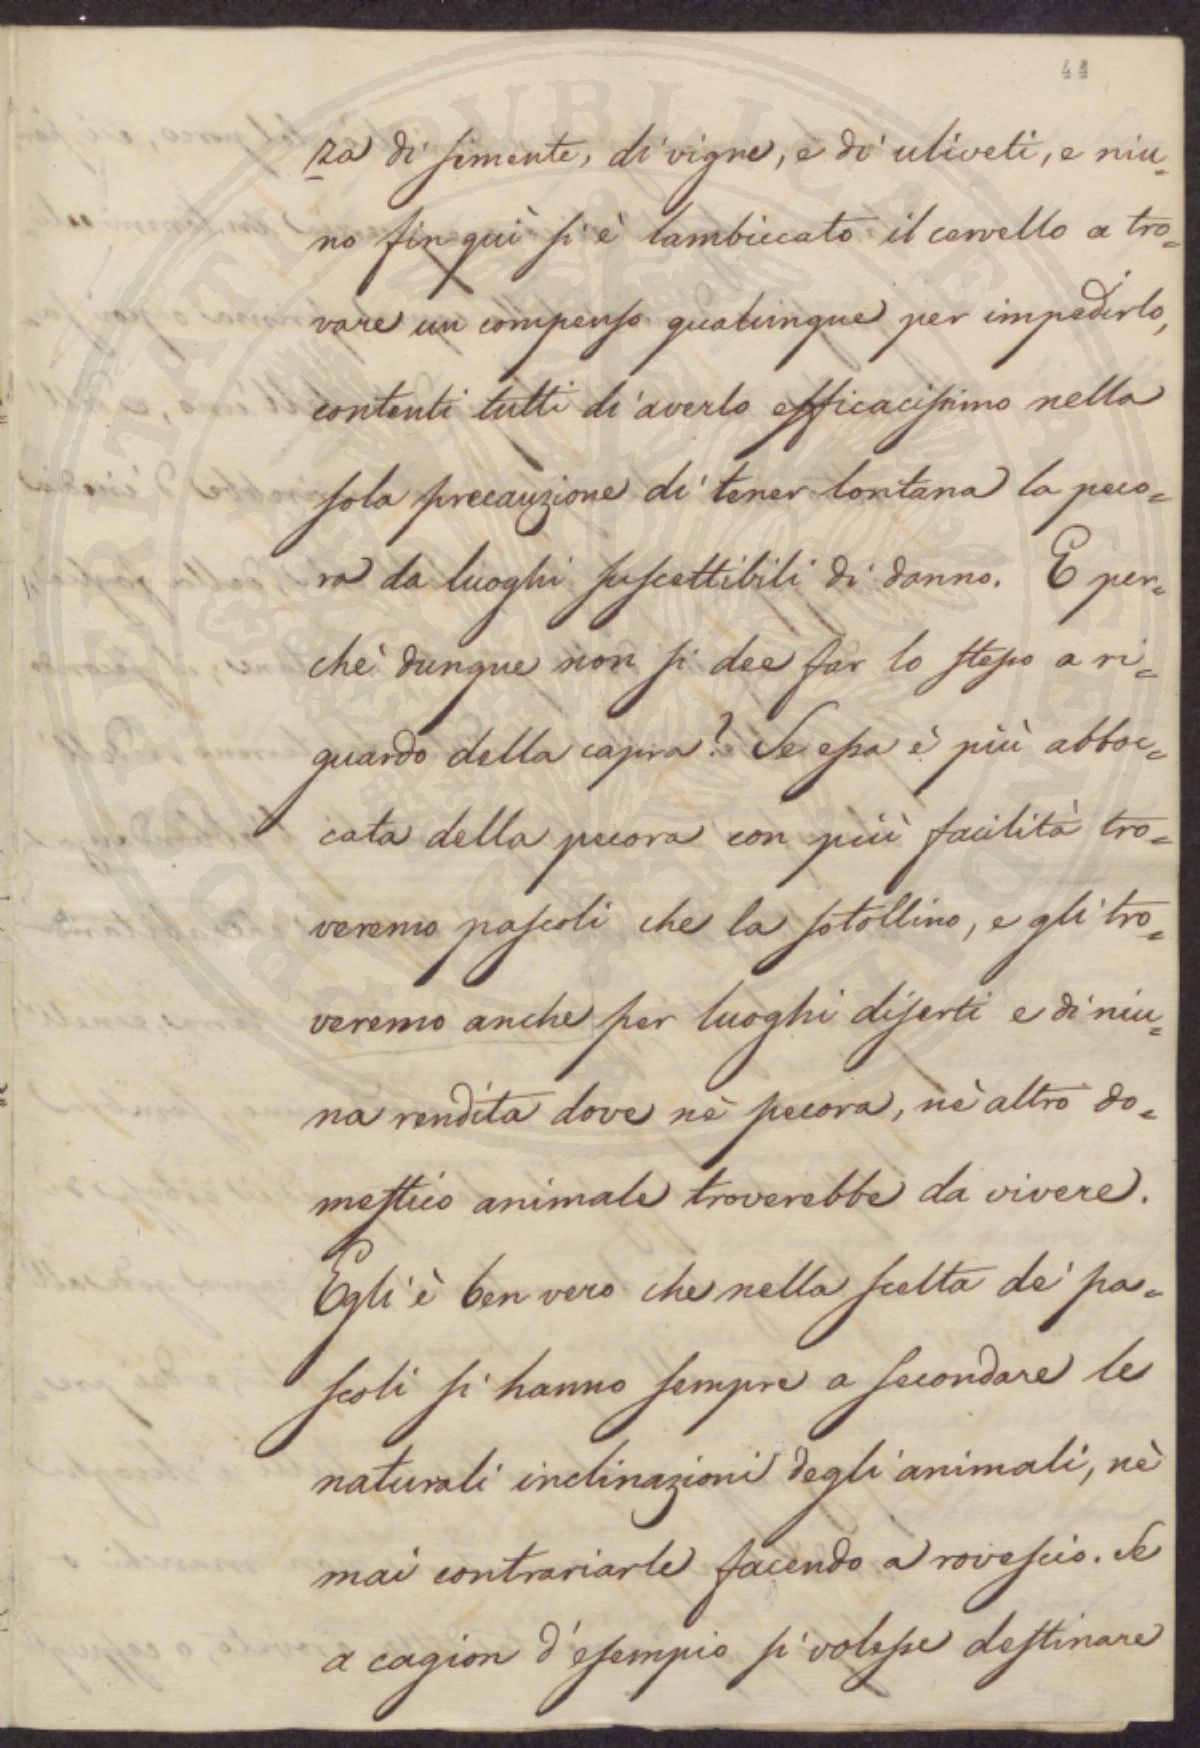 44
za di semente, di vigne, e di uliveti, e niu=
no fin quì si è lambiccato il cervello a tro=
vare un compenso qualunque per impedirlo,
contenti tutti di averlo efficacissimo nella
sola precauzione di tener lontana la peco=
ra da luoghi suscettibili di danno. E per=
chè dunque non si dee far lo stesso a ri=
guardo della capra? Se essa è più abboc=
cata della pecora con più facilità tro=
veremo pascoli che la sotollino, e gli tro=
veremo anche per luoghi diserti e di niu=
na rendita dove nè pecora, nè altro do=
mestico animale troverebbe da vivere.
Egli è ben vero che nella scelta de' pa=
scoli si hanno sempre a secondare le
naturali inclinazioni degli animali, nè
mai contrariarle facendo a rovescio. Se
a cagion d'esempio si volesse destinare